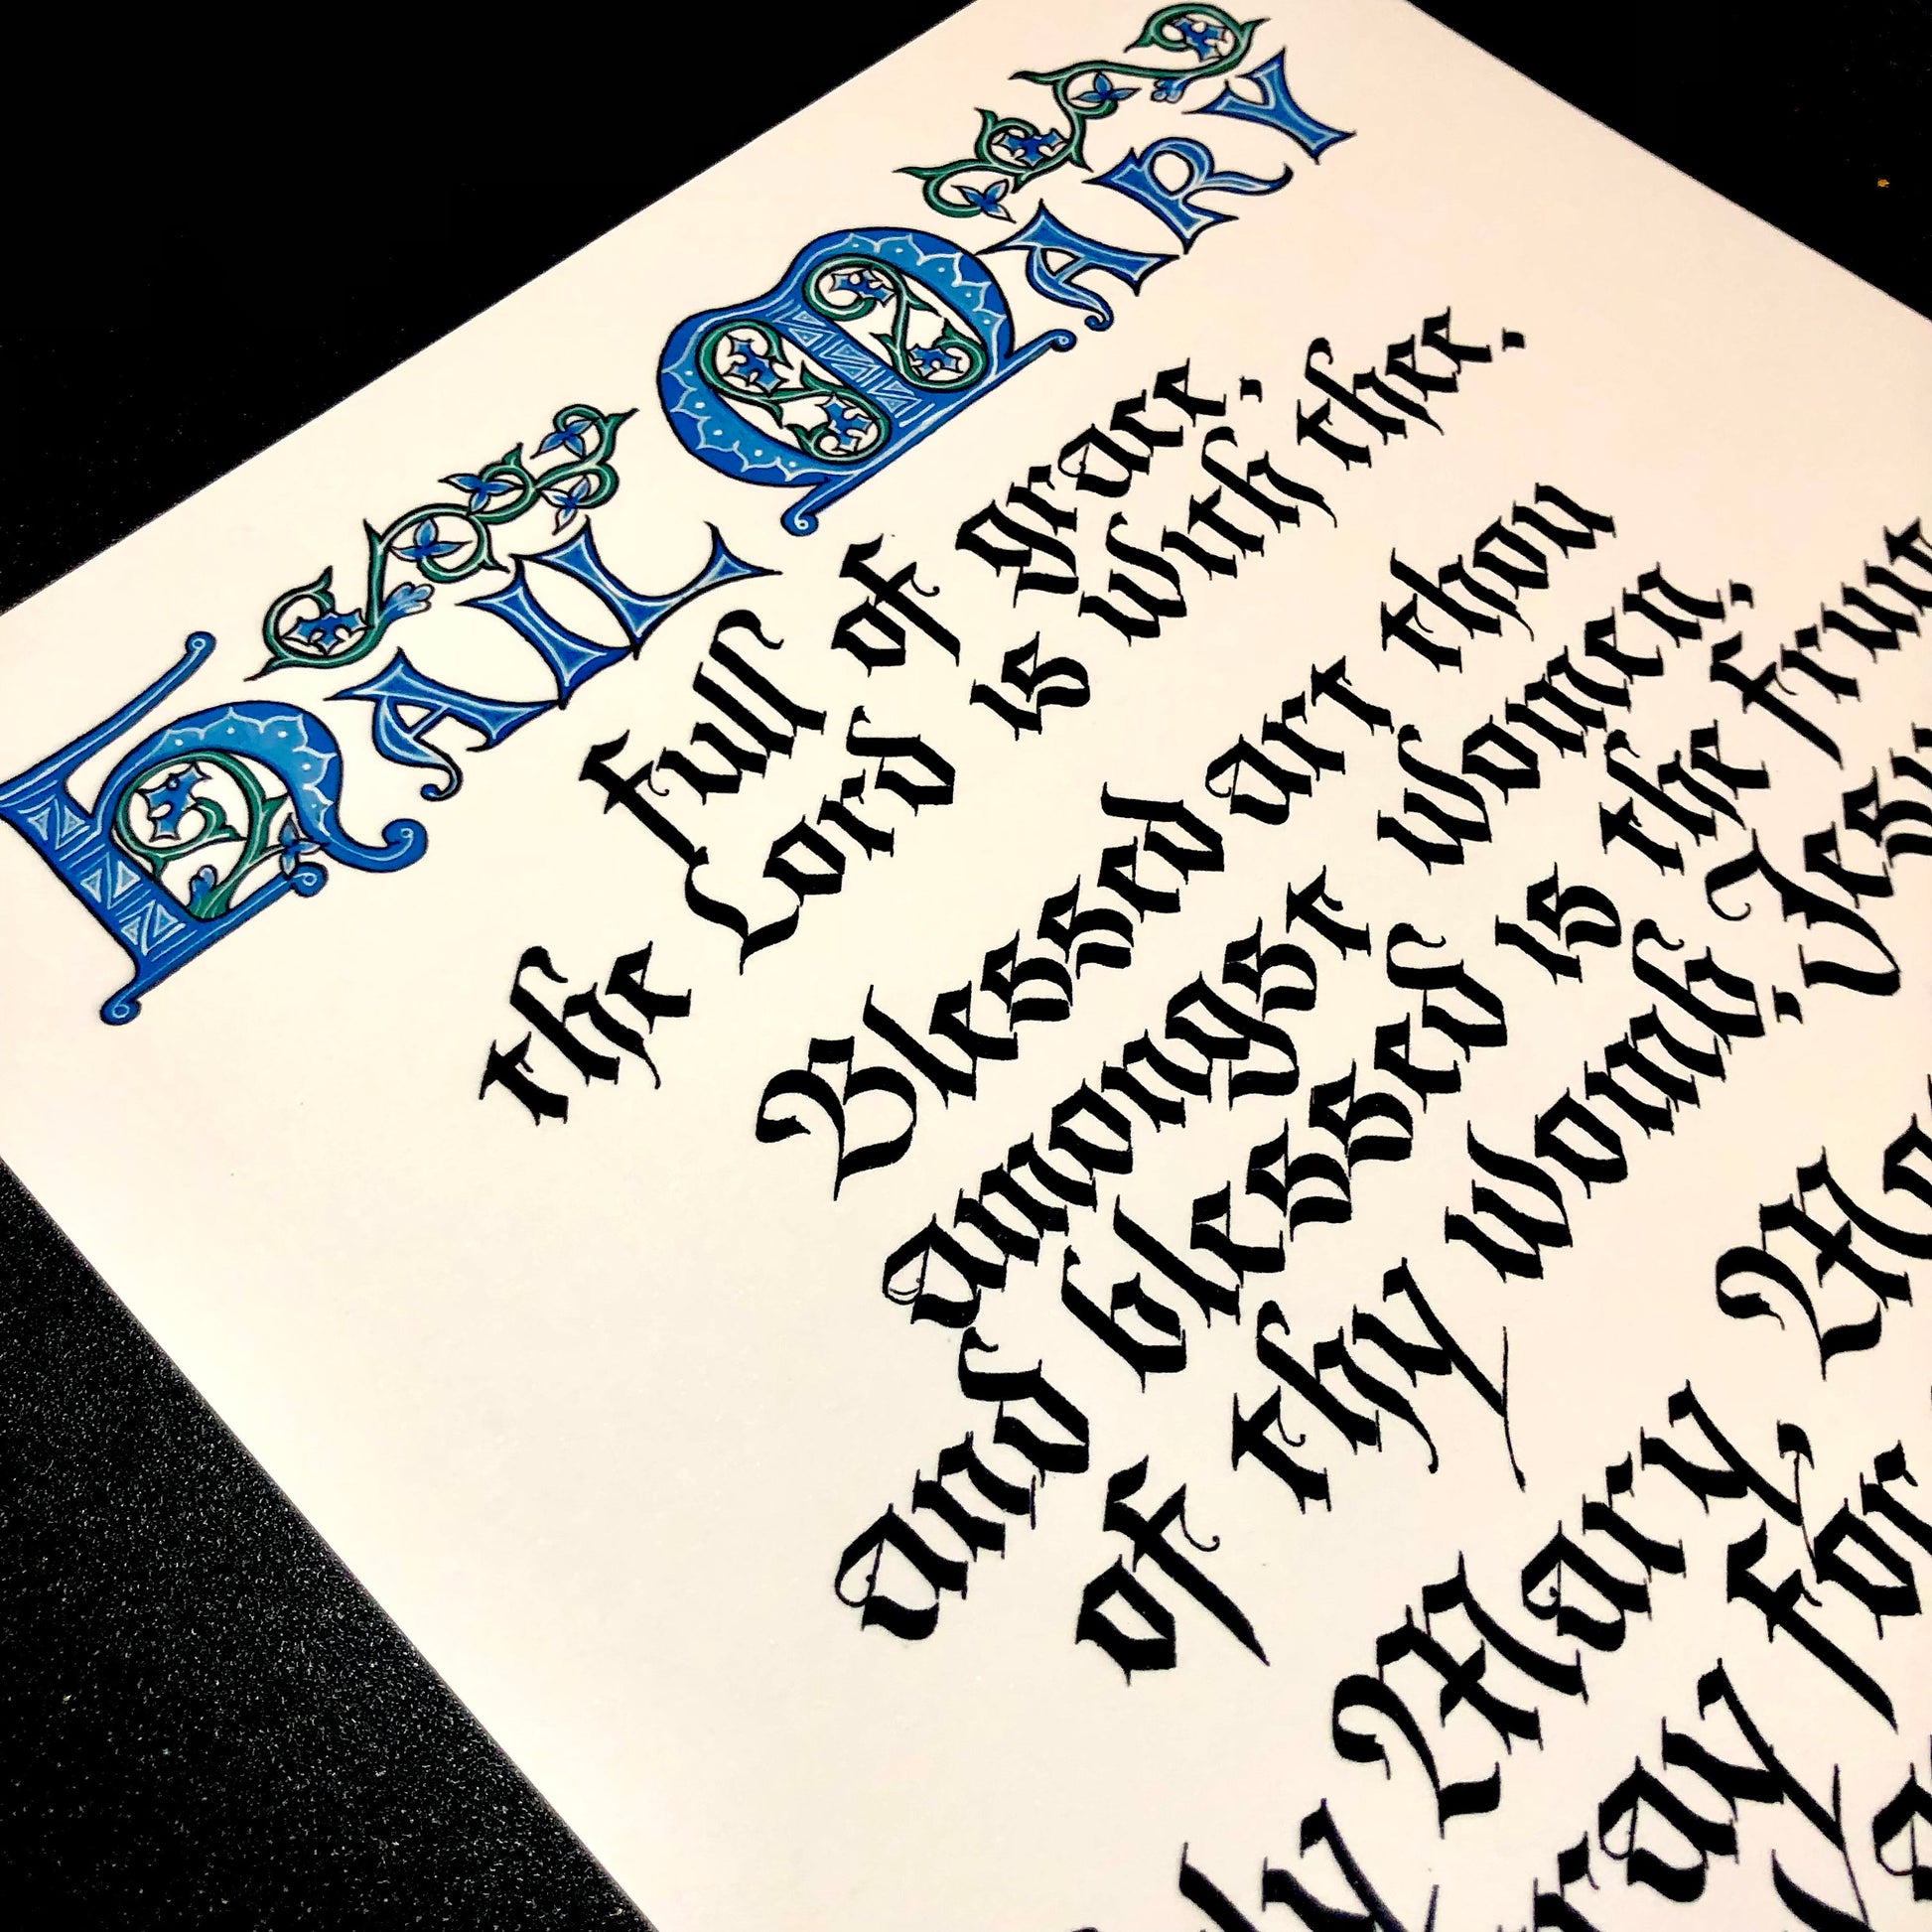 HAIL MARY
full of grace,
the Lord is with thee.
Blessed art thou
amongst women,
and blessed is the fruit
of thy womb, Jesu
Mary Mo
ay for